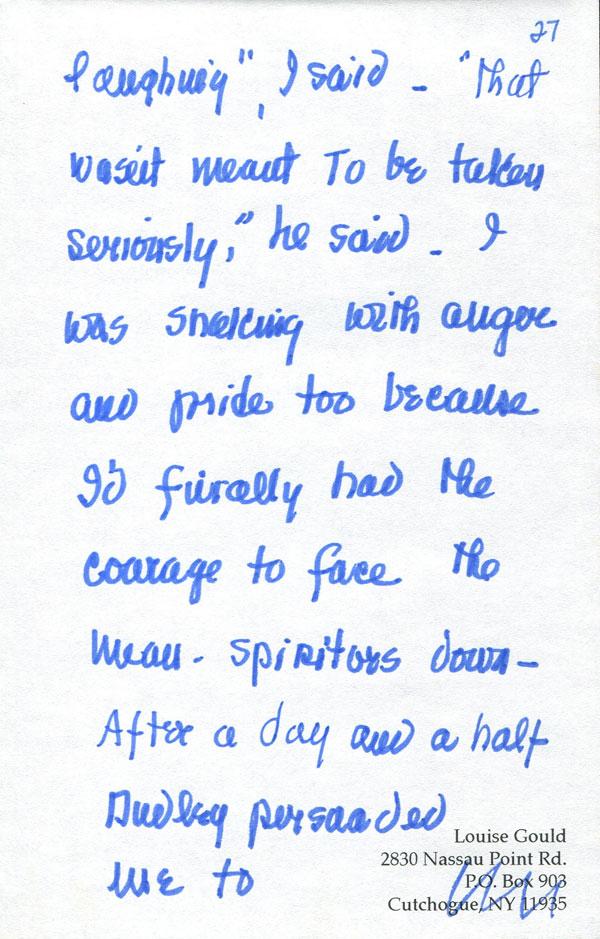 27
laughing", I said - "that
wasn't meant To be taken
seriously," he said - I
was shaking with anger
and pride too because
I'd finally had the
courage to face the
mean-spiritors down-
After a day and a half
Dudley persuaded
me to
Louise Gould
2830 Nassau Point Rd.
P.O. Box 903
Cutchogue, NY 11935